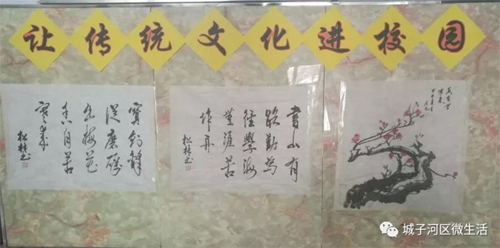 让传统文化进校园
宝剑锋
从磨砺
出梅花
香自苦
寒来
書山有
路勤為
径學海
無涯苦
作舟
城子河区微生活